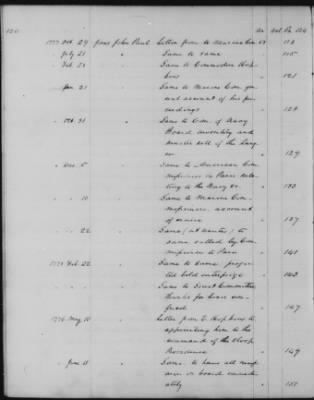 120 No. Vol. Pa. 124
1777 Oct. 29 Jones John Paul Letter from to Marine Com 58 113
July 28 " Same to same " 115
Feb. 28 " Same to Commodore Hop
kins " 121
Jan. 21 " Same to Marine Com.
account of his pro
ceedings " 124
Oct. 31 " Same to Com. of Navy
Board inventory and
muster roll of the
" 129
Dec. 5 " Same to American Com
missioners in Paris rela
ting to the Navy &c. " 133
" 10 " Same to Marine Com
missioners account
of " 137
" 22 " Same (at Nantes) to
same called by Com
missioners to Paris " 141
1778 Feb. 22 " Same to same projec
ted bold enterprize " 143
" Same to Secret Committee
thanks for
" 147
1776 May 10 " Letter from E. Hopkins to
appointing him to the
command of the sloop
Providence " 149
June 11 " Same to have all
men on board immedi
ately " 151